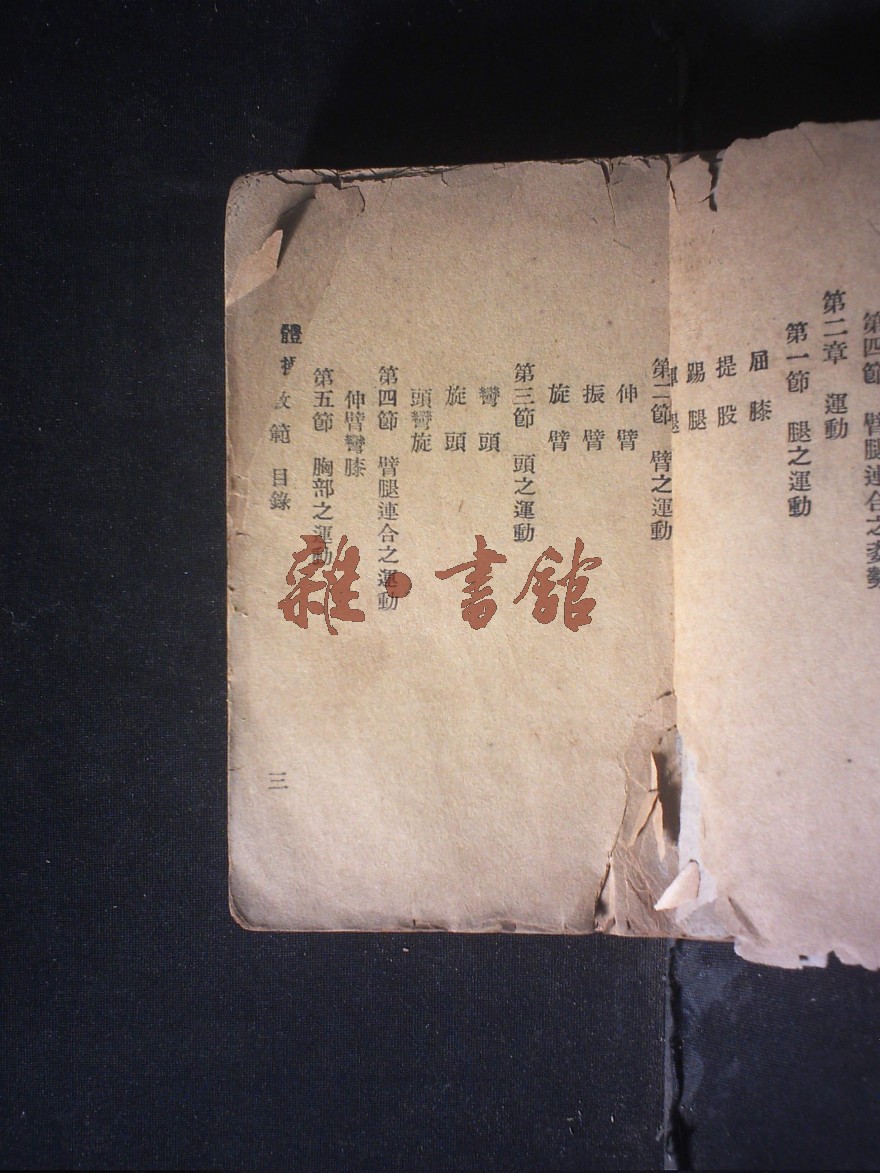 第四節 臂腿連合之姿勢
第二章 運動
第一節 腿之運動
屈膝
提股
踢腿
腿
第二節 臂之運動
伸臂
振臂
旋臂
第三節 頭之運動
彎頭
旋頭
頭彎旋
第四節 臂腿連合之運動
伸臂彎膝
第五節 胸部之運動
體操教範 目錄
三
雜·書館